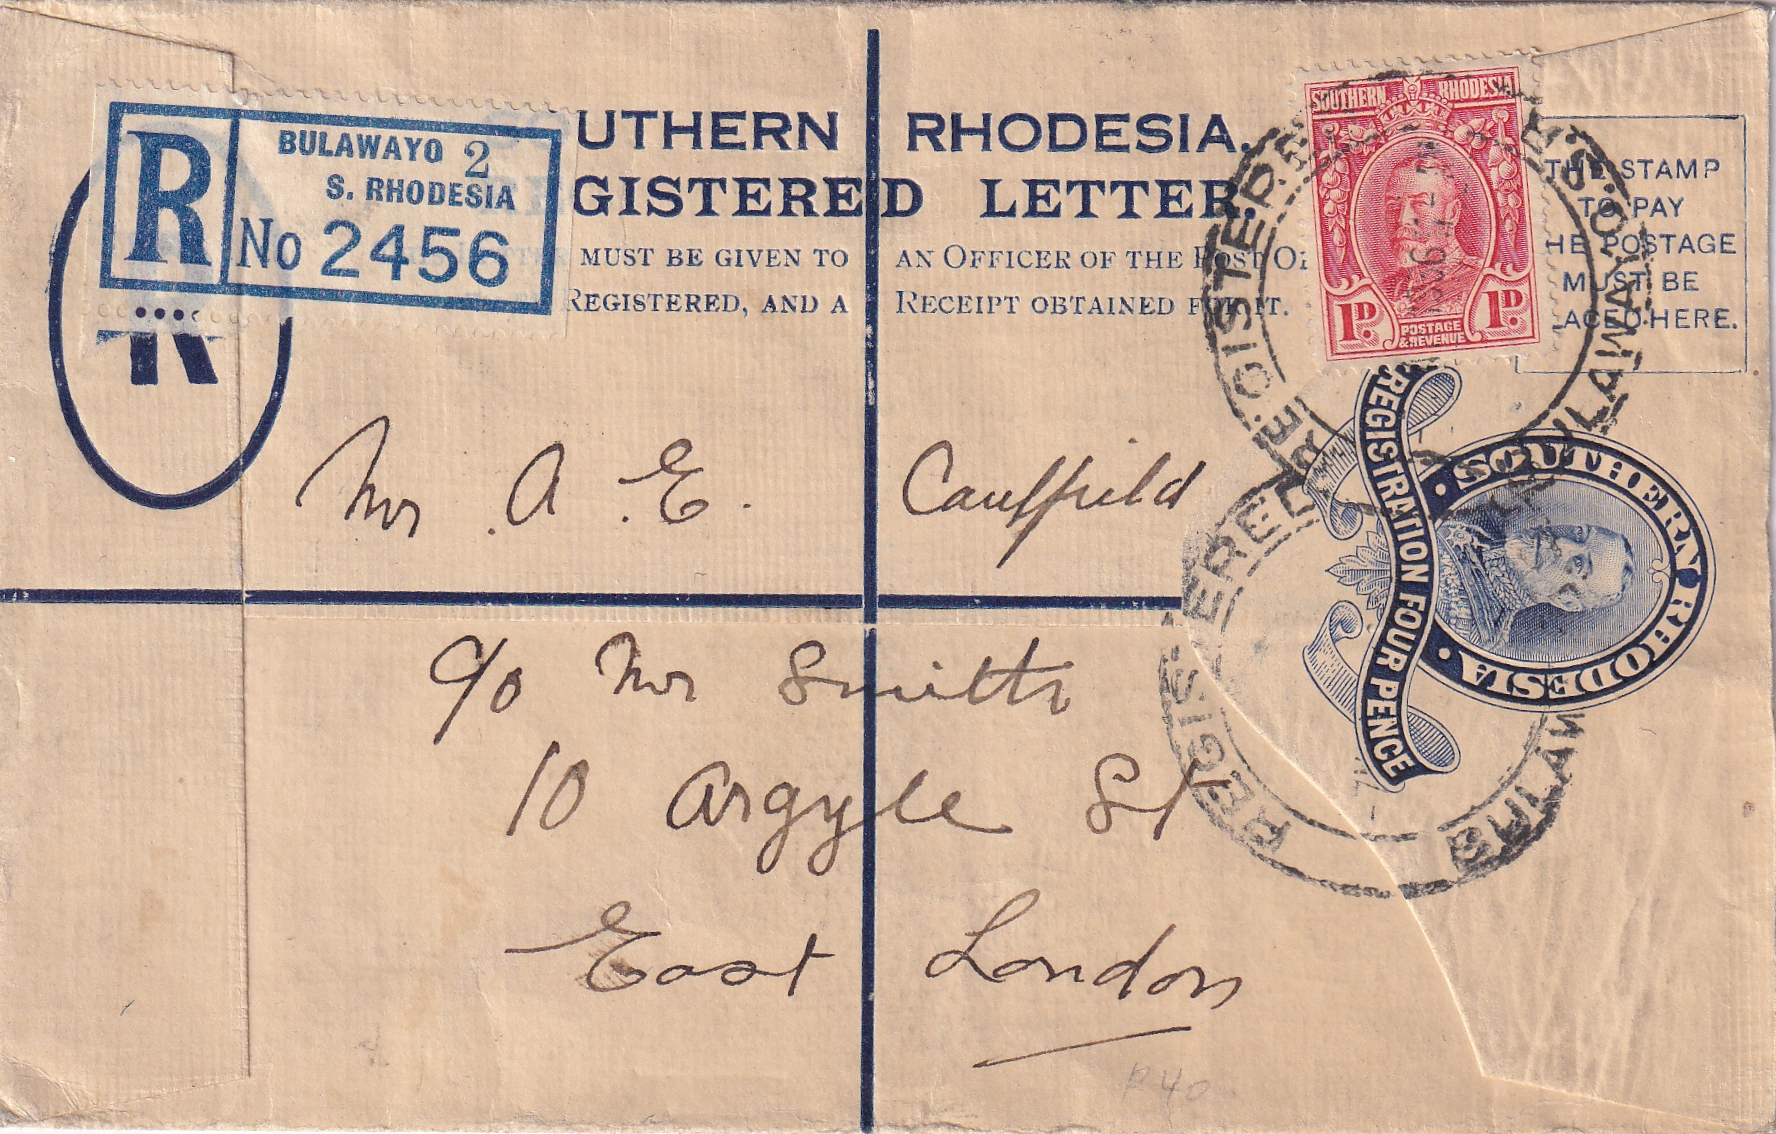 BULAWAYO 2
S. RHODESIA
R No 2456
UTHERN RHODESIA.
GISTERED LETTER.
MUST BE GIVEN TO AN OFFICER OF THE POST
REGISTERED, AND A RECEIPT OBTAINED FOR IT.
SOUTHERN RHODESIA
1D. POSTAGE & REVENUE 1D.
THE STAMP
TO PAY
HE POSTAGE
MUST BE
LACED HERE.
REGISTERED BULAWAYO
R
REGISTRATION FOUR PENCE
SOUTHERN RHODESIA
REGISTERED BULAW
Mr A. E. Caulfield
c/o Mr Smith
10 Argyle St
East London
R40